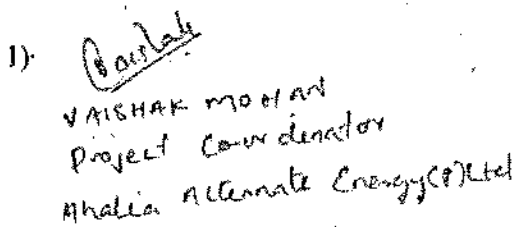 1).
Vaishak
VAISHAK MOHAN
Project Co-ordenator
Ahalia Alternate Energy(P)Ltd